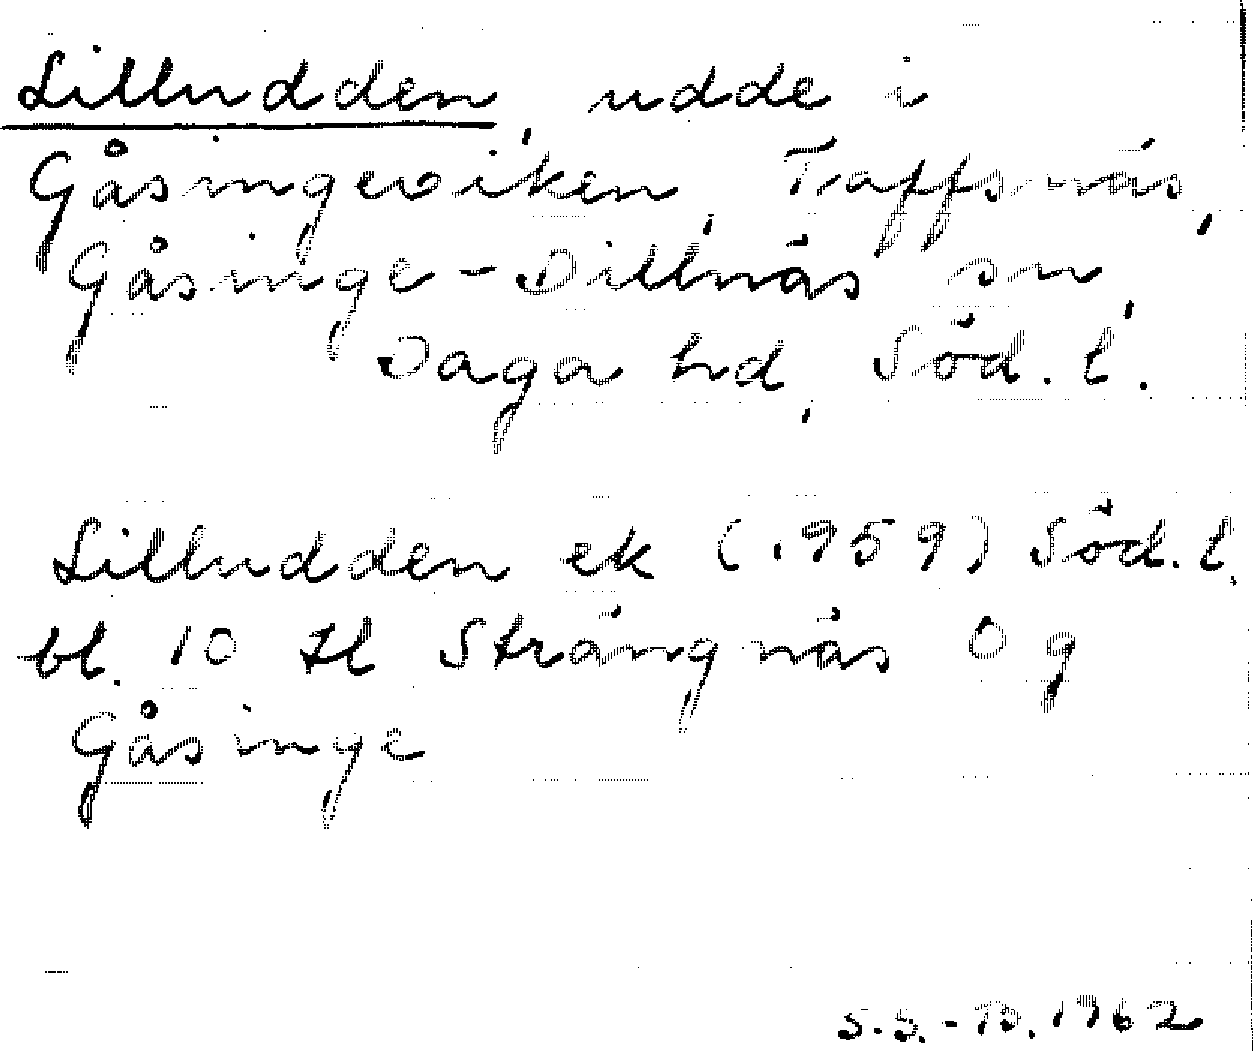 Lilludden, udde i
Gåsingeviken, Traffsnäs,
Gåsinge-Dillnäs sn,
Daga hd, Söd. l.
Lilludden ek (1959) Söd. l.
bl. 10 tl Strängnäs 0 g
Gåsinge
S.S.-B. 1962